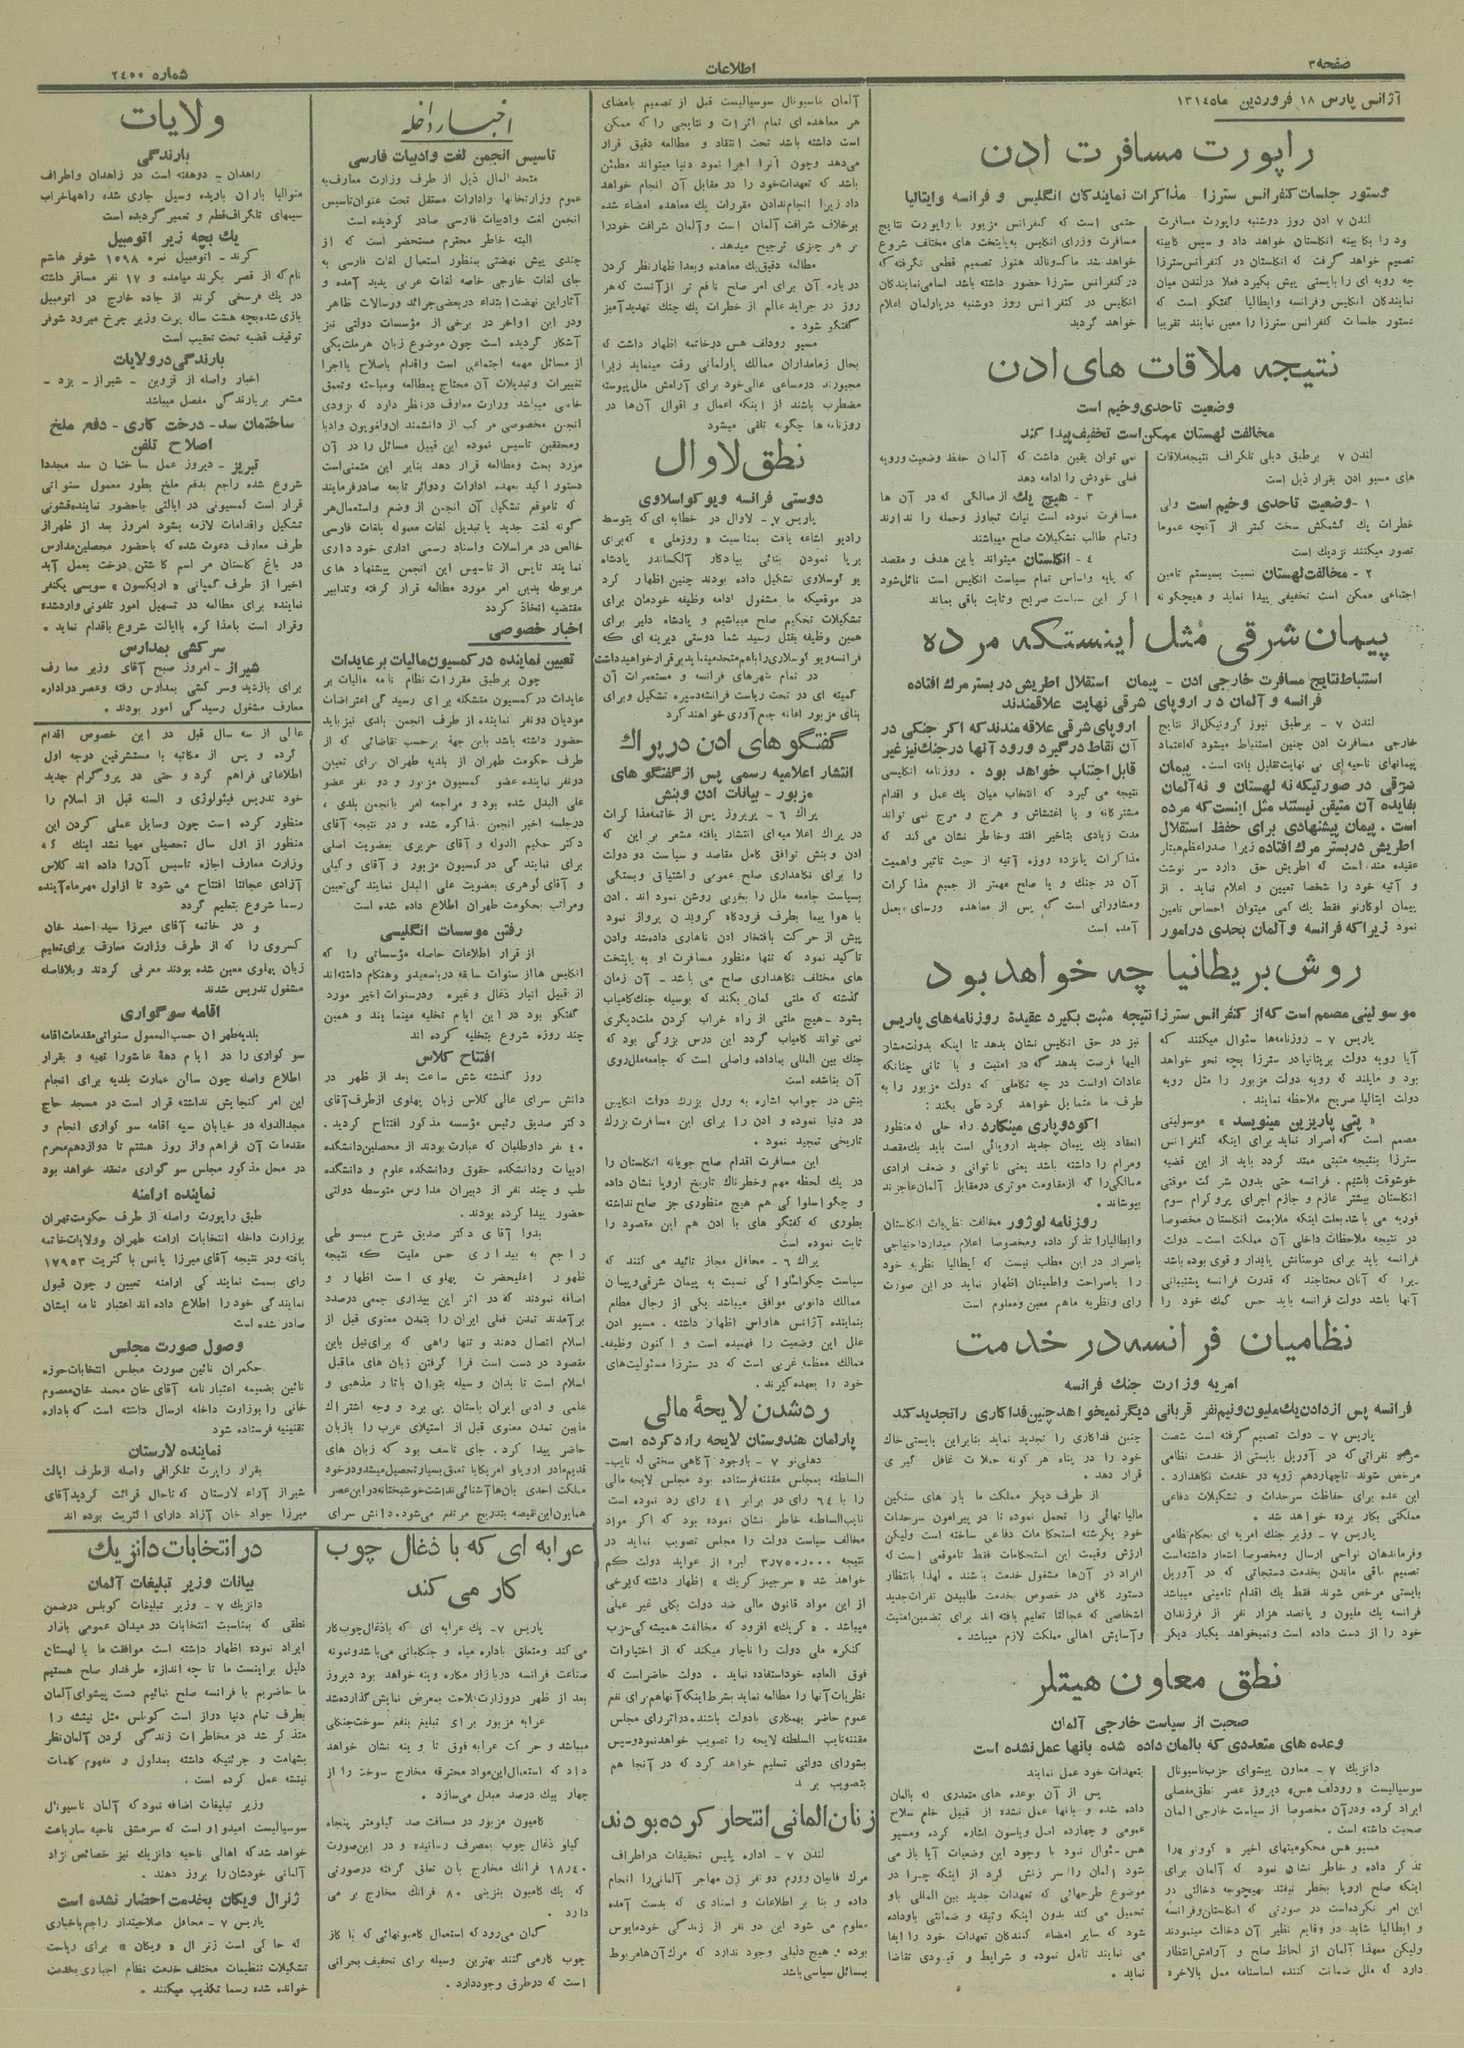 صفحه ۳
اطلاعات
شماره ۲۴۰۰
آژانس پارس ۱۸ فروردین ماه ۱۳۱۴
راپورت مسافرت ادن
دستور جلسات کنفرانس سترزا مذاکرات نمایندگان انگلیس و فرانسه وایتالیا
لندن ۷ ادن روز دوشنبه راپورت مسافرت
تصمیم خواهد گرفت که انگلستان در کنفرانس سترزا
چه رویه ای را بایستی پیش بگیرد فعلا درلندن میان
نمایندگان انگلیس وفرانسه وایطالیا گفتگو است که
دستور جلسات کنفرانس سترزا را معین نمایند تقریبا
حتمی است که کنفرانس مزبور با راپورت نتایج
مسافرت وزرای انگلیس به پایتخت های مختلف شروع
خواهد شد ماکدونالد هنوز تصمیم قطعی نگرفته که
درکنفرانس سترزا حضور داشته باشد اسامی نمایندگان
انگلیس در کنفرانس روز دوشنبه درپارلمان اعلام
خواهد گردید
نتیجه ملاقات های ادن
وضعیت تاحدی وخیم است
مخالفت لهستان ممکن است تخفیف پیدا کند
لندن ۷ برطبق دیلی تلگراف نتیجه ملاقات
های مسیو ادن بقرار ذیل است
۱ - وضعیت تاحدی وخیم است ولی
خطرات یك کشمکش سخت کمتر از آنچه عموما
تصور میکنند نزدیك است
۲ - مخالفت لهستان نسبت بسیستم تامین
اجتماعی ممکن است تخفیفی پیدا نماید و هیچگونه
نمی توان یقین داشت که آلمان حفظ وضعیت ورویه
فعلی خودش را ادامه دهد
۳ - هیچ یك از ممالکی که در آن ها
مسافرت نموده است نیات تجاوز وحمله را ندارند
وتمام طالب تشکیلات صلح میباشند
۴ - انگلستان میتواند باین هدف و مقصد
که پایه واساس تمام سیاست انگلیس است نائل شود
اگر این سیاست صریح وثابت باقی بماند
پیمان شرقی مثل اینستکه مرده
استنباط نتایج مسافرت خارجی ادن - پیمان استقلال اطریش در بستر مرك افتاده
فرانسه و آلمان در اروپای شرقی نهایت علاقمندند
لندن ۷ - برطبق نیوز کرونیکل از نتایج
خارجی مسافرت ادن چنین استنباط میشود که اعتماد
پیمانهای ناحیه ای بی نهایت تقلیل یافته است. پیمان
شرقی در صورتیکه نه لهستان و نه آلمان
بفایده آن متیقن نیستند مثل اینست که مرده
است . پیمان پیشنهادی برای حفظ استقلال
اطریش دربستر مرك افتاده زیرا صدراعظم هیتلر
عقیده مند است که اطریش حق دارد سر نوشت
و آتیه خود را شخصا تعیین و اعلام نماید . از
پیمان لوکارنو فقط یك کمی میتوان احساس تامین
نمود زیرا که فرانسه و آلمان بحدی درامور
اروپای شرقی علاقه مندند که اگر جنگی در
آن نقاط درگیرد ورود آنها درجنك نیز غیر
قابل اجتناب خواهد بود . روزنامه انگلیسی
نتیجه می گیرد که انتخاب میان یك عمل و اقدام
مشترکانه و یا اغتشاش و هرج و مرج نمی تواند
مدت زیادی بتاخیر افتد وخاطر نشان می کند که
مذاکرات پانزده روزه آتیه از حیث تاثیر واهمیت
آن در جنك و یا صلح مهمتر از جمیع مذاکرات
ومشاوراتی است که پس از معاهده ورسای بعمل
آمده است
روش بریطانیا چه خواهد بود
موسولینی مصمم است که از کنفرانس سترزا نتیجه مثبت بگیرد عقیده روزنامه های پاریس
پاریس ۷ - روزنامه‌ها سئوال میکنند که
آیا رویه دولت بریتانیا در سترزا بچه نحو خواهد
بود و مایلند که رویه دولت مزبور را مثل رویه
دولت ایتالیا صریح ملاحظه نمایند .
« پتی پاریزین مینویسد » موسولینی
مصمم است که اصرار نماید برای اینکه کنفرانس
سترزا بنتیجه مثبتی ممتد گردد باید از این قضیه
خوشوقت باشیم . فرانسه حتی بدون شرکت موقتی
انگلستان بیشتر عازم و جازم اجرای پروگرام سوم
فوریه می باشد بعلت اینکه ملایمت انگلستان مخصوصا
در نتیجه ملاحظات داخلی آن مملکت است - دولت
فرانسه باید برای دوستانش پایدار و قوی بوده باشد
زیرا که آنان محتاجند که قدرت فرانسه پشتیبانی
آنها باشد دولت فرانسه باید حس کمك خود را
نیز در حق انگلیس نشان بدهد تا اینکه بدولت مشار
الیها فرصت بدهد که در امنیت و با تانی چنانکه
عادات اواست در چه تکاملی که دولت مزبور را به
طرف ما متمایل خواهد کرد طی بکند :
اکودوپاری مینگارد راه حلی که منظور
انعقاد یك پیمان جدید اروپائی است باید یك مقصد
ومرام را داشته باشد یعنی ناتوانی و ضعف ارادی
ممالکی را که از مقاومت موثری درمقابل آلمان عاجزند
بپوشاند .
روزنامه لوژور مخالفت نظریات انگلستان
وایطالیا را تذکر داده ومخصوصا اعلام میدارد احتیاجی
باصرار در این مطلب نیست که ایطالیا نظریه خود
را باصراحت واطمینان اظهار نماید در این صورت
رای ونظریه ماهم معین ومعلوم است
نظامیان فرانسه در خدمت
امریه وزارت جنك فرانسه
فرانسه پس از دادن یك ملیون ونیم نفر قربانی دیگر نمیخواهد چنین فداکاری را تجدید کند
پاریس ۷ - دولت تصمیم گرفته است شصت
نفراتی که در آوریل بایستی از خدمت نظامی
مرخص شوند تا چهاردهم ژویه در خدمت نگاهدارد .
این عده برای حفاظت سرحدات و تشکیلات دفاعی
مملکتی بکار برده خواهد شد .
پاریس ۷ - وزیر جنك امریه ای بحکام نظامی
وفرماندهان نواحی ارسال ومخصوصا اشعار داشته است
تصمیم باقی ماندن بخدمت دستجاتی که در آوریل
بایستی مرخص شوند فقط یك اقدام تامینی میباشد
فرانسه یك ملیون و پانصد هزار نفر از فرزندان
خود را از دست داده است ونمیخواهد یکبار دیگر
چنین فداکاری را تجدید نماید بنابراین بایستی خاك
خود را در پناه هر گونه حملات غافل گیری
قرار دهد .
از طرف دیگر مملکت ما بار های سنگین
مالیا نهائی را تحمل نموده تا در پیرامون سرحدات
خود یکرشته استحکامات دفاعی ساخته است ولیکن
ارزش وقیمت این استحکامات فقط تاموقعی است که
افراد در آن‌ها مشغول خدمت باشند . لهذا بانتظار
دستور کافی در خصوص بخدمت طلبیدن نفرات جدید
اشخاصی که عجالتا تعلیم یافته اند برای تضمین امنیت
وآسایش اهالی مملکت لازم میباشد .
نطق معاون هیتلر
صحبت از سیاست خارجی آلمان
وعده های متعددی که بالمان داده شده بانها عمل نشده است
دانزیك ۷ - معاون پیشوای حزب ناسیونال
سوسیالیست « رودلف هس » دیروز عصر نطق مفصلی
ایراد کرده ودرآن مخصوصا از سیاست خارجی آلمان
صحبت داشته است .
مسیو هس محکومیتهای اخیر « کوونو » را
تذکر داده و خاطر نشان نمود که آلمان برای
اینکه صلح اروپا بخطر نیفتد بهیچوجه دخالتی در
این امر نکرده است در صورتی که انگلستان وفرانسه
و ایطالیا شاید در وقایع نظیر آن دخالت مینمودند
ولیکن معهذا آلمان از لحاظ صلح و آرامش انتظار
دارد که ملل ضمانت کننده اساسنامه ممل بالاخره
بتعهدات خود عمل نمایند
پس از آن بوعده های متعددی که بالمان
داده شده و بانها عمل نشده از قبیل خلع سلاح
عمومی و چهارده اصل ویلسون اشاره کرده ومسیو
هس سئوال نمود با وجود این وضعیات آیا باز می
شود المان را سر زنش کرد از اینکه چرا در
موضوع طرحهائی که تعهدات جدید بین المللی باو
تحمیل می کند بدون اینکه وثیقه و ضمانتی باوداده
شود که سایر امضاء کنندگان تعهدات خود را ایفا
می نمایند تامل نموده و شرایط و قیودی تقاضا
نماید .
آلمان ناسیونال سوسیالیست قبل از تصمیم بامضای
هر معاهده ای تمام اثرات و نتایجی را که ممکن
است داشته باشد تحت انتقاد و مطالعه دقیق قرار
می‌دهد وچون آنرا اجرا نمود دنیا میتواند مطمئن
باشد که تعهدات خود را در مقابل آن انجام خواهد
داد زیرا انجام ندادن مقررات یك معاهده امضاء شده
برخلاف شرافت آلمان است وآلمان شرافت خودرا
بر هر چیزی ترجیح میدهد .
مطالعه دقیق یك معاهده وبعدا ظهارنظر کردن
درباره آن برای امر صلح نافع تر از آنست که هر
روز در جراید عالم از خطرات یك جنك تهدید آمیز
گفتگو شود .
مسیو رودلف هس درخاتمه اظهار داشت که
بحال زمامداران ممالك پارلمانی رقت مینماید زیرا
مجبورند درمساعی عالی خود برای آرامش ملل پیوسته
مضطرب باشند از اینکه اعمال و اقوال آن‌ها در
روزنامه ها چگونه تلقی میشود
نطق لاوال
دوستی فرانسه ویوگواسلاوی
پاریس ۷- لاوال در خطابه ای که بتوسط
رادیو اشاعه یافت بمناسبت « روزملی » که برای
برپا نمودن بنائی بیادگار آلکساندر پادشاه
یوگوسلاوی تشکیل داده بودند چنین اظهار کرد
در موقعیکه ما مشغول ادامه وظیفه خودمان برای
تشکیلات تحکیم صلح میباشیم و پادشاه دلیر برای
همین وظیفه بقتل رسید شما دوستی دیرینه ای که
فرانسه ویوگوسلاری را باهم متحد مینماید برقرار خواهید داشت
در تمام شهرهای فرانسه و مستعمرات آن
کمیته ای در تحت ریاست فرانشه دسپره تشکیل وبرای
بنای مزبور اعانه جمع آوری خواهند کرد
گفتگوهای ادن در پراك
انتشار اعلامیه رسمی پس از گفتگو های
مزبور - بیانات ادن وبنش
پراك ۶ - پریروز پس از خاتمه مذاکرات
در پراك اعلامیه ای انتشار یافته مشعر براین که
ادن و بنش توافق کامل مقاصد و سیاست دو دولت
را برای نگاهداری صلح عمومی و اشتیاق وبستگی
بسیاست جامعه ملل را بخوبی روشن نمود اند . ادن
با هوا پیما بطرف فرودگاه کرویدن پرواز نمود
پیش از حرکت بافتخار ادن ناهاری داده شد وادن
تاکید نمود که تنها منظور مسافرت او به پایتخت
های مختلف نگاهداری صلح می باشد - آن زمان
گذشته که ملتی گمان بکند که بوسیله جنك کامیاب
بشود - هیچ ملتی از راه خراب کردن ملت دیگری
نمی تواند کامیاب گردد این درس بزرگی بود که
جنك بین المللی بماداده واصلی است که جامعه ملل روی
آن بنا شده است
بنش در جواب اشاره به رول بزرك دولت انگلیس
در دنیا نموده و ادن را برای این مسافرت بزرك
تاریخی تمجید نمود .
این مسافرت اقدام صلح جویانه انگلستان را
در یك لحظه مهم وخطرناك تاریخ اروپا نشان داده
و چکواسلواکی هم هیچ منظوری جز صلح نداشته
بطوری که گفتگو های با ادن هم این مقصود را
ثابت نموده است
پراك ۶ - محافل مجاز تائید می کنند که
سیاست چکواسلواکی نسبت به پیمان شرقی وپیمان
ممالك دانوبی موافق میباشد یکی از رجال مطلع
بنماینده آژانس هاواس اظهار داشته . مسیو ادن
علل این وضعیت را فهمیده است و اکنون وظیفه
ممالك معظمه غربی است که در سترزا مسئولیت‌های
خود را بعهده گیرند .
ردشدن لایحهٔ مالی
پارلمان هندوستان لایحه را رد کرده است
دهلی نو ۷ - باوجود آگاهی سختی که نایب-
السلطنه بمجلس مقننه فرستاده بود مجلس لایحه مالی
را با ۶۴ رای در برابر ۴۱ رای رد نموده است
نایب السلطنه خاطر نشان نموده بود که اگر مواد
مخالف سیاست دولت را مجلس تصویب نماید در
نتیجه ۳٫۷۵۰٫۰۰۰ لیره از عواید دولت کم
خواهد شد « سرجیمز کریك » اظهار داشته که برخی
از این مواد قانون مالی ضد دولت بکلی غیر عملی
میباشد . « کریك» افزود که مخالفت همیشه کی حزب
کنگره ملی دولت را ناچار میکند که از اختیارات
فوق العاده خود استفاده نماید . دولت حاضر است که
نظریات آنها را مطالعه نماید بشرط اینکه آنها هم برای نفع
عموم حاضر بهمکاری بادولت باشند . در اثر رای مجلس
مقننه نایب السلطنه لایحه را تصویب خواهد نمود وسپس
بشورای دولتی تسلیم خواهد کرد که در آنجا هم
بتصویب برسد
زنان المانی انتحار کرده بودند
لندن ۷ - اداره پلیس تحقیقات دراطراف
مرك فابیان وورم دو نفر زن مهاجر آلمانی را انجام
داده و بنا بر اطلاعات و اسنادی که بدست آمده
معلوم می شود این دو نفر از زندگی خود مایوس
بوده و هیچ دلیلی وجود ندارد که مرك آن‌ها مربوط
بمسائل سیاسی باشد
اخبار داخله
تاسیس انجمن لغت وادبیات فارسی
متحد المال ذیل از طرف وزارت معارف به
عموم وزارتخانها وادارات مستقل تحت عنوان تاسیس
انجمن لغت وادبیات فارسی صادر گردیده است
البته خاطر محترم مستحضر است که از
چندی پیش نهضتی بمنظور استعمال لغات فارسی به
جای لغات خارجی خاصه لغات عربی پدید آمده و
آثار این نهضت ابتداء در بعضی جرائد ورسالات ظاهر
ودر این اواخر در برخی از مؤسسات دولتی نیز
آشکار گردیده است چون موضوع زبان هر ملت یکی
از مسائل مهمه اجتماعی است واقدام باصلاح یا اجرا
تغییرات و تبدیلات آن محتاج بمطالعه ومباحثه وتعمق
خاصی میباشد وزارت معارف درنظر دارد که بزودی
انجمن مخصوصی مرکب از دانشمندان ولغویون وادبا
ومحققین تاسیس نموده این قبیل مسائل را در آن
مورد بحث ومطالعه قرار دهد بنابر این متمنی است
دستور اکید بعهده ادارات ودوائر تابعه صادر فرمایند
که تاموقع تشکیل آن انجمن از وضع واستعمال هر
گونه لغت جدید یا تبدیل لغات معموله بلغات فارسی
خالص در مراسلات واسناد رسمی اداری خودداری
نمایند تا پس از تاسیس این انجمن پیشنهاد های
مربوطه بدین امر مورد مطالعه قرار گرفته وتدابیر
مقتضیه اتخاذ گردد
اخبار خصوصی
تعیین نماینده در کمسیون مالیات بر عایدات
چون برطبق مقررات نظام نامه مالیات بر
عایدات در کمسیون متشکله برای رسیدگی اعتراضات
مودیان دونفر نماینده از طرف انجمن بلدی نیز باید
حضور داشته باشد باین جههٔ برحسب تقاضائی که از
طرف حکومت طهران از بلدیه طهران برای تعیین
دونفر نماینده عضو کمسیون مزبور و دو نفر عضو
علی البدل شده بود و مراجعه امر بانجمن بلدی ،
درجلسه اخیر انجمن مذاکره شده و در نتیجه آقای
دکتر حکیم الدوله و آقای حریری بعضویت اصلی
برای نمایندگی در کمسیون مزبور و آقای وکیلی
و آقای لوهری بعضویت علی البدل نمایندگی تعیین
ومراتب بحکومت طهران اطلاع داده شده است
رفتن موسسات انگلیسی
از قرار اطلاعات حاصله مؤسساتی را که
انگلیس ها از سنوات سابقه در باسعیدو وهنگام داشته اند
از قبیل انبار ذغال و غیره ودرسنوات اخیر مورد
گفتگو بود در این ایام تخلیه مینمایند و همین
چند روزه شروع بتخلیه کرده اند
افتتاح کلاس
روز گذشته شش ساعت بعد از ظهر در
دانش سرای عالی کلاس زبان پهلوی ازطرف آقای
دکتر صدیق رئیس مؤسسه مذکور افتتاح گردید .
۴۰ نفر داوطلبان که عبارت بودند از محصلین دانشکده
ادبیات ودانشکده حقوق ودانشکده علوم و دانشکده
طب و چند نفر از دبیران مدارس متوسطه دولتی
حضور پیدا کرده بودند .
بدوا آقای دکتر صدیق شرح مبسوطی
راجع به بیداری حس ملیت که نتیجه
ظهور اعلیحضرت پهلوی است اظهار و
اضافه نمودند که در اثر این بیداری جمعی درصدد
برآمدند تمدن فعلی ایران را بتمدن معنوی قبل از
اسلام اتصال دهند و تنها راهی که برای نیل باین
مقصود در دست است فرا گرفتن زبان های ماقبل
اسلام است تا بدان وسیله بتوان بآثار مذهبی و
علمی و ادبی ایران باستان پی برد و وجه اشتراك
مابین تمدن معنوی قبل از استیلای عرب را بازبان
حاضر پیدا کرد . جای تاسف بود که زبان های
قدیم مادر اروپا و امریکا با تعمق بسیار تحصیل میشد ودر خود
مملکت احدی بان‌ها آشنائی نداشت خوشبختانه در این عصر
همایون این نقیصه بتدریج مرتفع می‌شود . دانش سرای
عرابه ای که با ذغال چوب
کار می کند
پاریس ۷- یك عرابه ای که باذغال چوب کار
می کند ومتعلق باداره میاه و جنگلبانی می باشد ونمونه
صناعت فرانسه در بازار مکاره وینه خواهد بود دیروز
بعد از ظهر دروزارت فلاحت بمعرض نمایش گذارده شد
عرابه مزبور برای تبلیغ بنفع سوخت جنگلی
میباشد و حرکت عرابه فوق تا وینه نشان خواهد
داد که استعمال این مواد محترقه مخارج سوخت را از
چهار بیك درصد مبدل می‌سازد .
کامیون مزبور در مسافت صد کیلومتر پنجاه
کیلو ذغال چوب بمصرف رسانیده و در این صورت
۱۸٫۴۰ فرانك مخارج بان تعلق گرفته درصورتی
که یك کامیون بنزینی ۸۰ فرانك مخارج بر می
دارد .
گمان می‌رود که استعمال کامیونهائی که با گاز
چوب کار می کنند بهترین وسیله برای تخفیف بحرانی
است که درطرق وجود دارد .
ولایات
بارندگی
زاهدان - دوهفته است در زاهدان واطراف
متوالیا باران باریده وسیل جاری شده راهها خراب
سیمهای تلگراف قطع و تعمیر گردیده است
یك بچه زیر اتومبیل
کرند - اتومبیل نمره ۱۰۹۸ شوفر هاشم
نام که از قصر بکرند میامده و ۱۷ نفر مسافر داشته
در یك فرسخی کرند از جاده خارج در اتومبیل
بازی شده بچه هشت ساله پرت وزیر چرخ میرود شوفر
توقیف قضیه تحت تعقیب است
بارندگی در ولایات
اخبار واصله از قزوین - شیراز - یزد -
مشعر بر بارندگی مفصل میباشد
ساختمان سد - درخت کاری - دفع ملخ
اصلاح تلفن
تبریز - دیروز عمل ساختمان سد مجددا
شروع شده راجع بدفع ملخ بطور معمول سنواتی
قرار است کمسیونی در ایالتی باحضور نماینده قشونی
تشکیل واقدامات لازمه بشود امروز بعد از ظهر از
طرف معارف دعوت شده که باحضور محصلین مدارس
در باغ گلستان مراسم کاشتن درخت بعمل آید
اخیرا از طرف کمپانی « اریکسون » سویسی یکنفر
نماینده برای مطالعه در تسهیل امور تلفونی وارد شده
وقرار است بامذاکره باایالت شروع باقدام نماید .
سرکشی بمدارس
شیراز - امروز صبح آقای وزیر معارف
برای بازدید وسرکشی بمدارس رفته وعصر دراداره
معارف مشغول رسیدگی امور بودند .
عالی از سه سال قبل در این خصوص اقدام
کرده و پس از مکاتبه با مستشرقین درجه اول
اطلاعاتی فراهم کرد و حتی در پروگرام جدید
خود تدریس فیلولوژی و السنه قبل از اسلام را
منظور کرده است چون وسایل عملی کردن این
منظور از اول سال تحصیلی مهیا نشد اینك که
وزارت معارف اجازه تاسیس آن را داده اند کلاس
آزادی عجالتا افتتاح می شود تا از اول مهرماه آینده
رسما شروع بتعلیم گردد
و در خاتمه آقای میرزا سید احمد خان
کسروی را که از طرف وزارت معارف برای تعلیم
زبان پهلوی معین شده بودند معرفی کردند وبلافاصله
مشغول تدریس شدند
اقامه سوگواری
بلدیه طهران حسب المعمول سنواتی مقدمات اقامه
سوگواری را در ایام دههٔ عاشورا تهیه و بقرار
اطلاع واصله چون سالن عمارت بلدیه برای انجام
این امر گنجایش نداشته قرار است در مسجد حاج
مجدالدوله در خیابان سپه اقامه سوگواری انجام و
مقدمات آن فراهم واز روز هشتم تا دوازدهم محرم
در محل مذکور مجلس سوگواری منعقد خواهد بود
نماینده ارامنه
طبق راپورت واصله از طرف حکومت تهران
بوزارت داخله انتخابات ارامنه طهران وولایات خاتمه
یافته ودر نتیجه آقای میرزا یانس با کثریت ۱۷۹۵۳
رای بسمت نمایندگی ارامنه تعیین و چون قبول
نمایندگی خود را اطلاع داده اند اعتبار نامه ایشان
صادر شده است
وصول صورت مجلس
حکمران نائین صورت مجلس انتخابات حوزه
نائین بضمیمه اعتبار نامه آقای خان محمد خان معصوم
خانی را بوزارت داخله ارسال داشته است که باداره
تقنینیه فرستاده شود
نماینده لارستان
بقرار راپرت تلگرافی واصله ازطرف ایالت
شیراز آراء لارستان که تاحال قرائت گردید آقای
میرزا جواد خان آزاد دارای اکثریت بوده اند
در انتخابات دانزیك
بیانات وزیر تبلیغات آلمان
دانزیك ۷ - وزیر تبلیغات گوبلس درضمن
نطقی که بمناسبت انتخابات در میدان عمومی بازار
ایراد نموده اظهار داشته است موافقت ما با لهستان
دلیل براینست ما تا چه اندازه طرفدار صلح هستیم
ما حاضریم با فرانسه صلح نمائیم دست پیشوای آلمان
بطرف تمام دنیا دراز است گوبلس مثل نیتشه را
متذکر شد در مخاطرات زندگی کردن آلمان نظر
بشهامت و جرئتیکه داشته بمدلول و مفهوم کلمات
نیتشه عمل کرده است .
وزیر تبلیغات اضافه نمود که آلمان ناسیونال
سوسیالیست امیدوار است که سرمشق ناحیه سار باعث
خواهد شد که اهالی ناحیه دانزیك نیز خصائص نژاد
آلمانی خودشان را بروز دهند .
ژنرال ویگان بخدمت احضار نشده است
پاریس ۷ - محافل صلاحیتدار راجع باخباری
که حاکی است ژنرال « ویگان » برای ریاست
تشکیلات تنظیمات مختلف خدمت نظام اجباری بخدمت
خوانده شده رسما تکذیب میکنند .